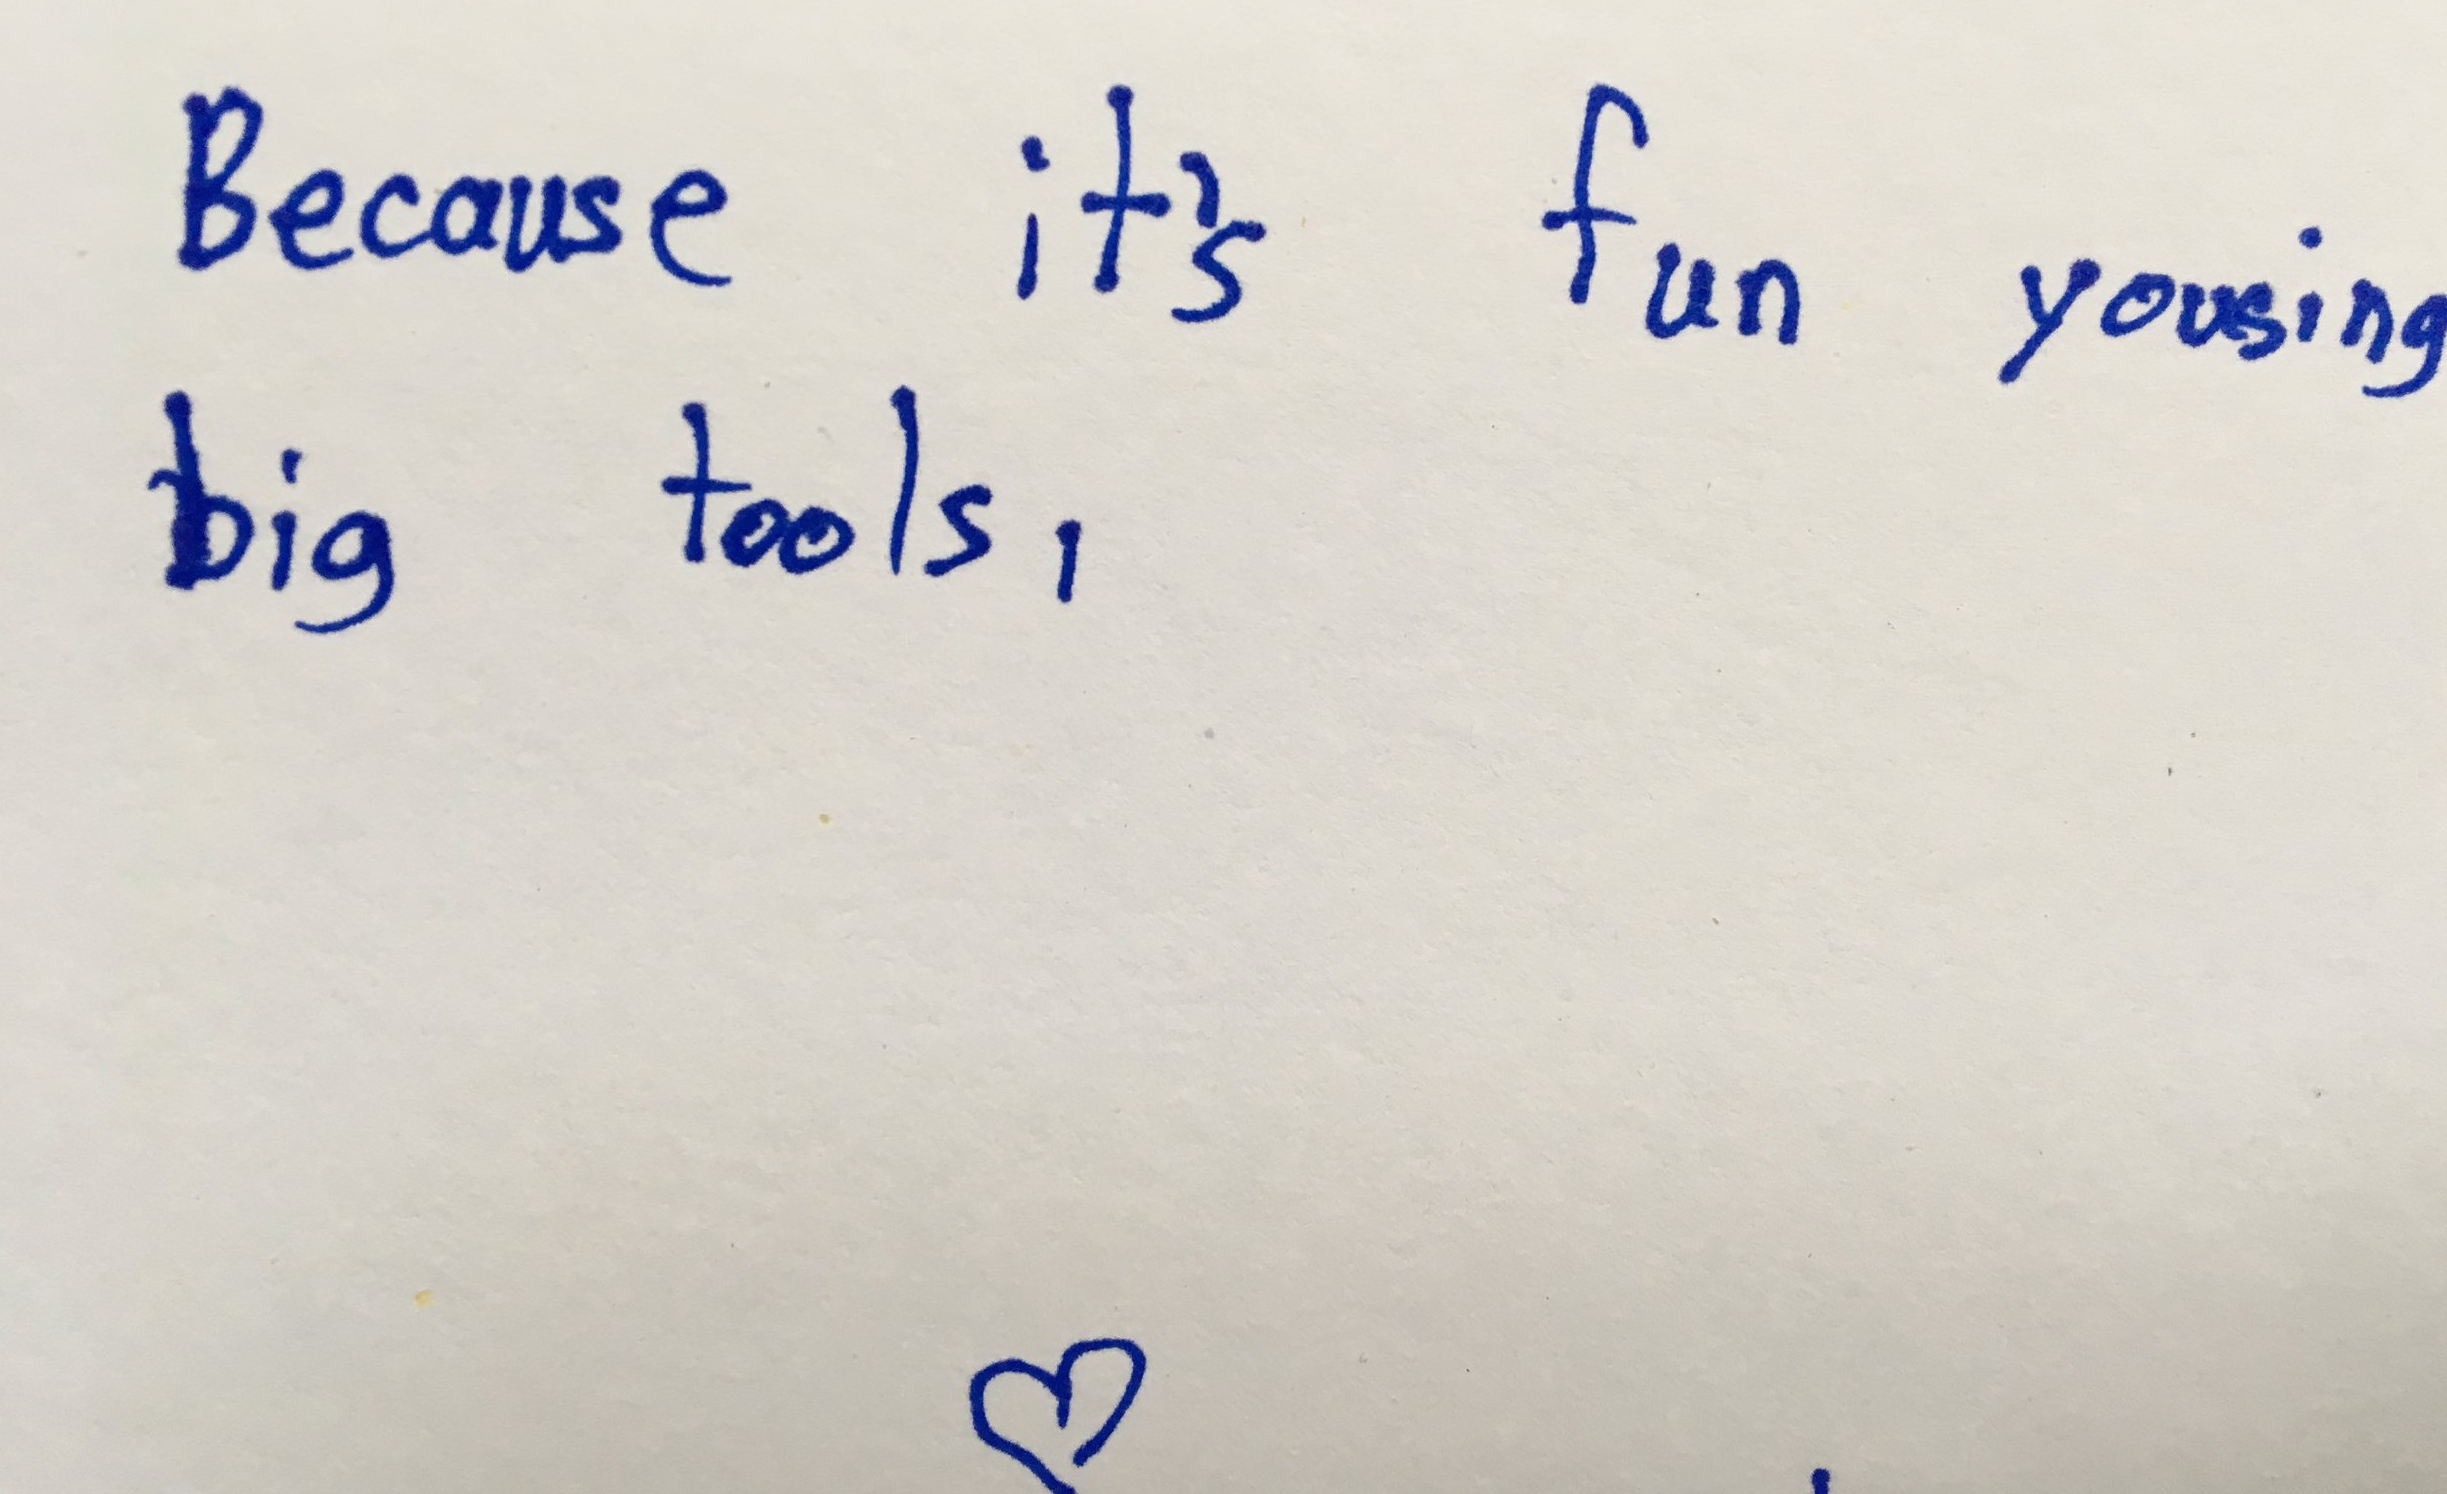 Because it's fun yousing
big tools,